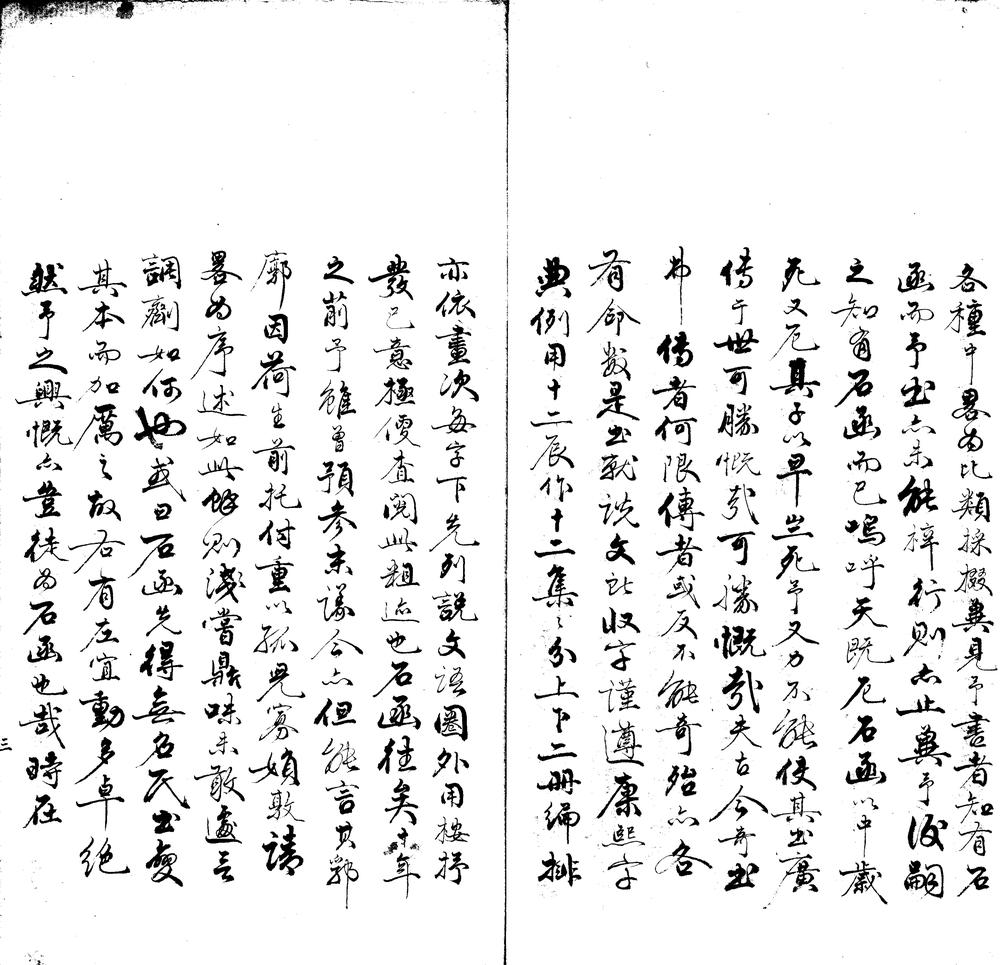 各種中畧為比類採掇冀見予書者知有石
函而予書亦未能梓行則亦止冀予後嗣
之知有石函而已嗚呼天既厄石函以中歲
死又厄其子以早世死予又力不能使其書廣
傳于世可勝慨哉可勝慨哉夫古今奇書
弗傳者何限傳者或反不能奇殆亦各
有命數是書就說文所收字謹遵康熙字
典例用十二辰作十二集集分上下二冊編排
亦依畫次每字下先列說文語圈外用按抒
發己意極便查閱此粗迹也石函往矣年
之前予雖曾預參末議今亦但能言其郛
廓因荷生前托付重以孤兒寡婦敦請
畧為序述如此餘則淺嘗鼎味未敢遽言
調劑如何也或曰石函先得無名氏書變
其本而加厲之故右有左宜動多卓絕
然予之興慨亦豈徒為石函也哉時在
三